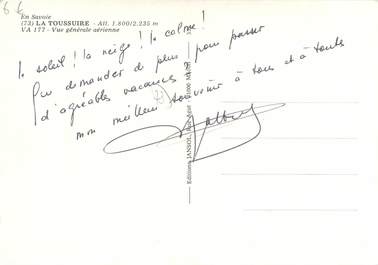 6 €
En Savoie
(73) LA TOUSSUIRE - Alt. 1.800/2.235 m
VA 177 - Vue générale aérienne
le soleil ! la neige ! le calme !
Que demander de plus pour passer
d'agréables vacances
mon meilleur souvenir à tous et à toutes
Editions JANSOL